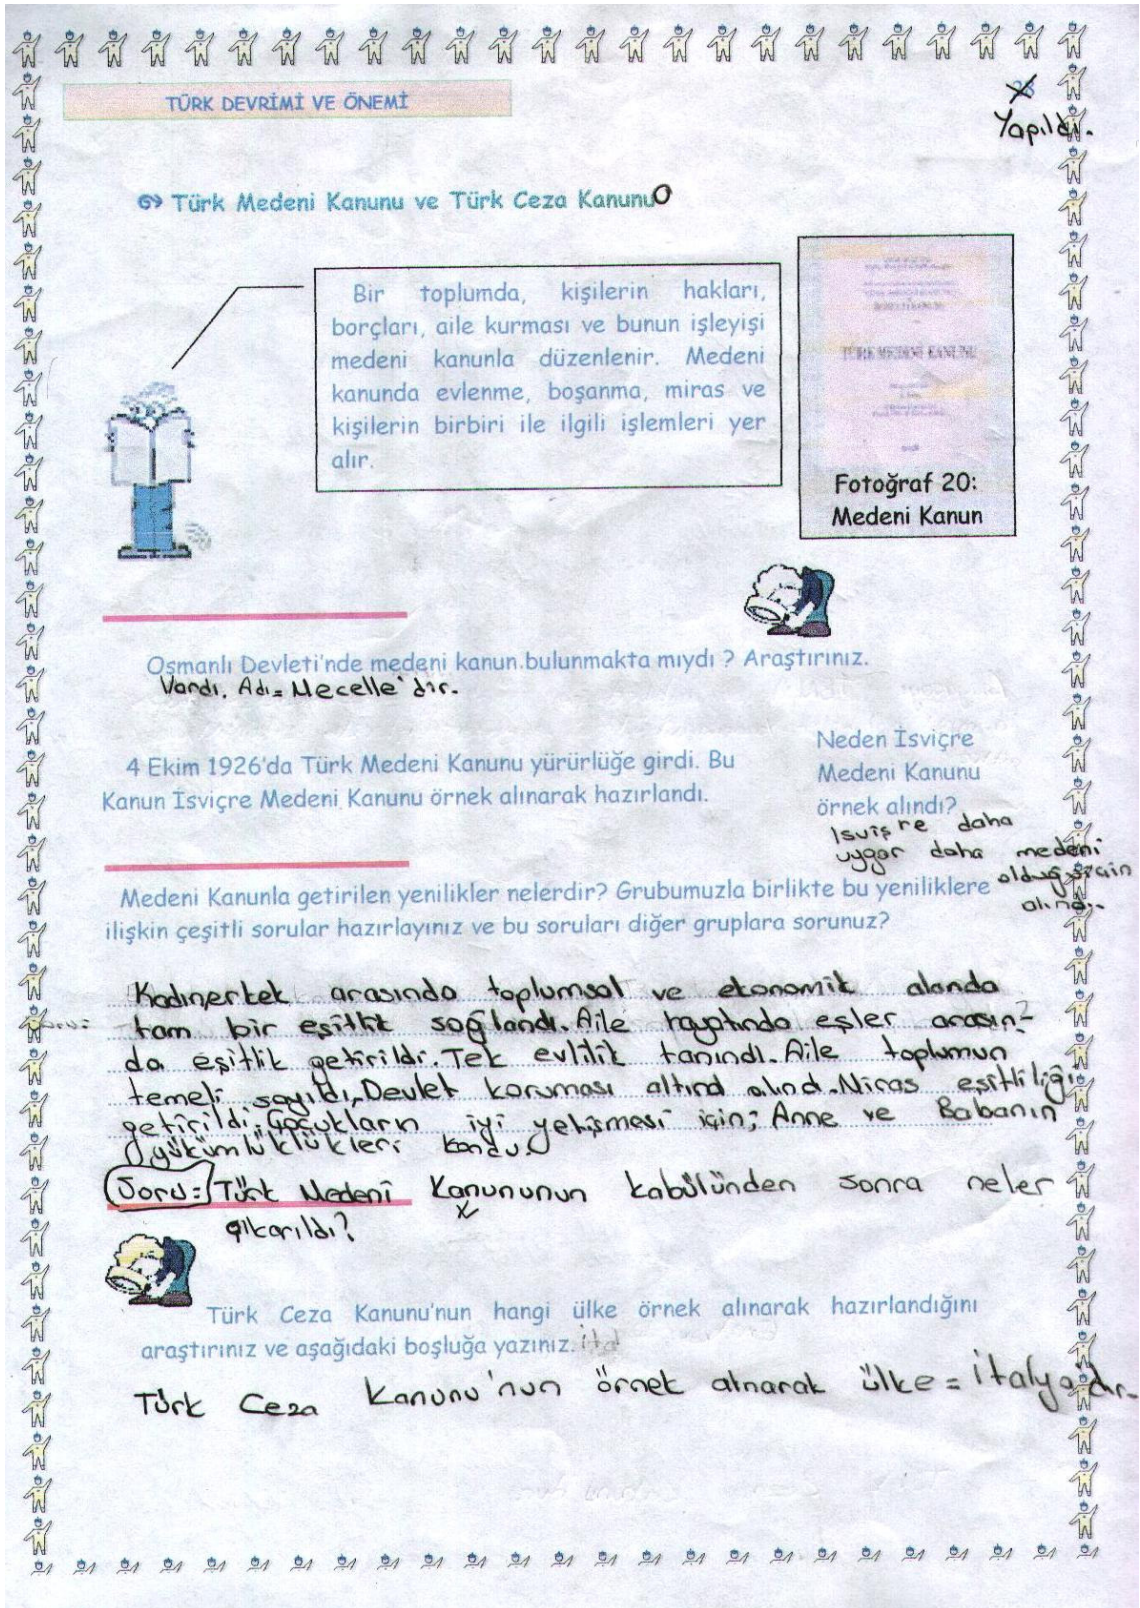 TÜRK DEVRİMİ VE ÖNEMİ
Yapıldı.
Türk Medeni Kanunu ve Türk Ceza Kanunu
Bir toplumda, kişilerin hakları,
borçları, aile kurması ve bunun işleyişi
medeni kanunla düzenlenir. Medeni
kanunda evlenme, boşanma, miras ve
kişilerin birbiri ile ilgili işlemleri yer
alır.
TÜRK MEDENİ KANUNU
Fotoğraf 20:
Medeni Kanun
Osmanlı Devleti'nde medeni kanun bulunmakta mıydı ? Araştırınız.
Vardı. Adı= Mecelle'dir.
4 Ekim 1926'da Türk Medeni Kanunu yürürlüğe girdi. Bu
Kanun İsviçre Medeni Kanunu örnek alınarak hazırlandı.
Neden İsviçre
Medeni Kanunu
örnek alındı?
Isvişre daha
uygar daha medeni
olduğu için
alındı.
Medeni Kanunla getirilen yenilikler nelerdir? Grubumuzla birlikte bu yeniliklere
ilişkin çeşitli sorular hazırlayınız ve bu soruları diğer gruplara sorunuz?
Kadın,erkek arasında toplumsal ve ekonomik alanda
tam bir eşitlik sağlandı. Aile hayatında eşler arasın-
da eşitlik getirildi. Tek evlilik tanındı. Aile toplumun
temeli sayıldı, Devlet koruması altınd alınd. Miras eşitliliği
getirildi. Çocukların iyi yetişmesi için; Anne ve Babanın
yükümlüklükleri kondu.
Soru= Türk Medeni Kanununun kabülünden sonra neler
çıkarıldı?
Türk Ceza Kanunu'nun hangi ülke örnek alınarak hazırlandığını
araştırınız ve aşağıdaki boşluğa yazınız. ital
Türk Ceza Kanunu'nun örnek alnarak ülke = italyadır.